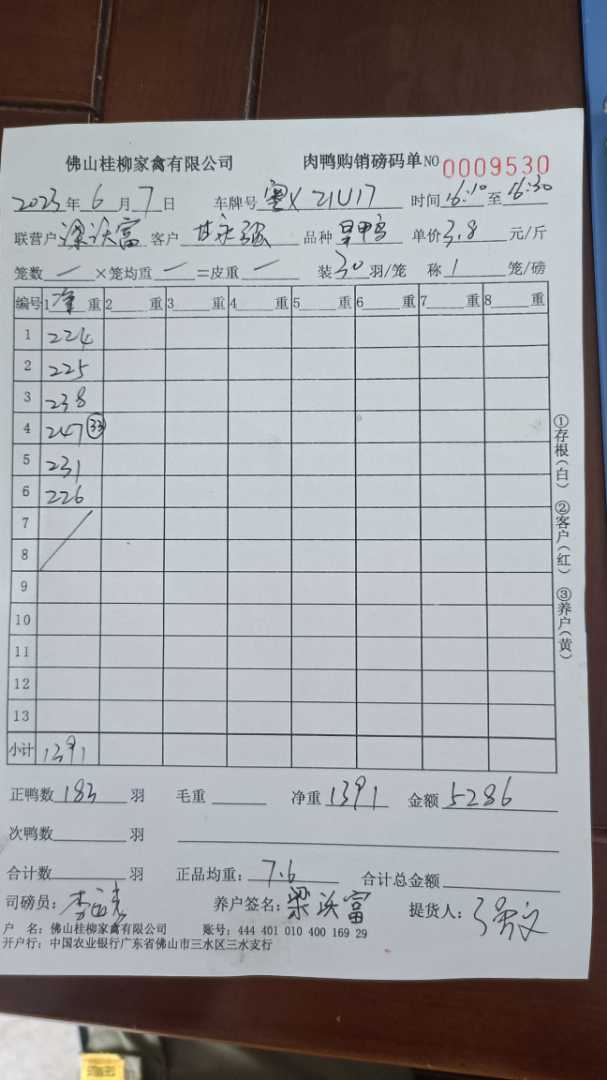 佛山桂柳家禽有限公司 肉鸭购销磅码单 NO 0009530
2023年 6 月 7 日 车牌号 粤X 21U17 时间 16:10 至 16:30
联营户 梁沃富 客户 甘永强 品种 旱鸭 单价 3.8 元/斤
笼数 一 ×笼均重 一 =皮重 一 装 30 羽/笼 称 1 笼/磅
编号 1 净 重 2 重 3 重 4 重 5 重 6 重 7 重 8 重
1 224
2 225
3 238
4 247 33
5 231
6 226
7
8
9
10
11
12
13
小计 1391
正鸭数 183 羽 毛重 净重 1391 金额 5286
次鸭数 羽
合计数 羽 正品均重: 7.6 合计总金额
司磅员: 李 养户签名: 梁沃富 提货人:
户 名: 佛山桂柳家禽有限公司 账号: 444 401 010 400 169 29
开户行: 中国农业银行广东省佛山市三水区三水支行
①存根(白) ②客户(红) ③养户(黄)